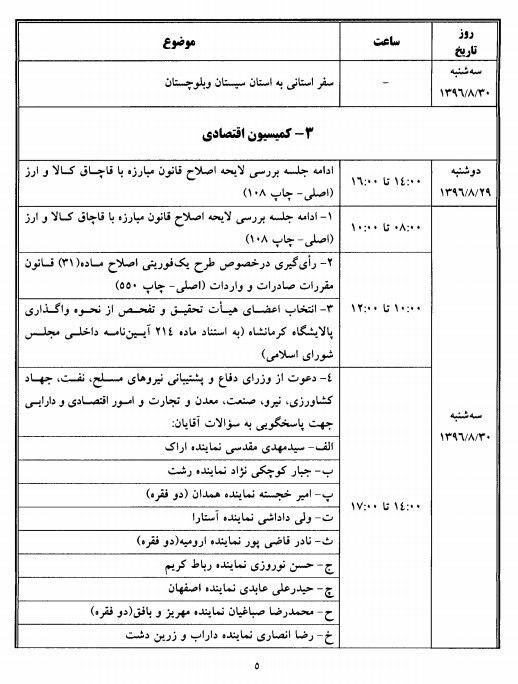 روز
تاریخ
ساعت
موضوع
سه‌شنبه
۱۳۹۶/۸/۳۰
-
سفر استانی به استان سیستان وبلوچستان
۳- کمیسیون اقتصادی
دوشنبه
۱۳۹۶/۸/۲۹
۱۴:۰۰ تا ۱۶:۰۰
ادامه جلسه بررسی لایحه اصلاح قانون مبارزه با قاچاق کالا و ارز
(اصلی- چاپ ۱۰۸)
سه‌شنبه
۱۳۹۶/۸/۳۰
۰۸:۰۰ تا ۱۰:۰۰
۱- ادامه جلسه بررسی لایحه اصلاح قانون مبارزه با قاچاق کالا و ارز
(اصلی- چاپ ۱۰۸)
۱۰:۰۰ تا ۱۲:۰۰
۲- رأی‌گیری درخصوص طرح یک‌فوریتی اصلاح ماده(۳۱) قانون
مقررات صادرات و واردات (اصلی- چاپ ۵۵۰)
۳- انتخاب اعضای هیأت تحقیق و تفحص از نحوه واگذاری
پالایشگاه کرمانشاه (به استناد ماده ۲۱۴ آیین‌نامه داخلی مجلس
شورای اسلامی)
۱۴:۰۰ تا ۱۷:۰۰
۴- دعوت از وزرای دفاع و پشتیبانی نیروهای مسلح، نفت، جهاد
کشاورزی، نیرو، صنعت، معدن و تجارت و امور اقتصادی و دارایی
جهت پاسخگویی به سؤالات آقایان:
الف- سیدمهدی مقدسی نماینده اراک
ب- جبار کوچکی نژاد نماینده رشت
پ- امیر خجسته نماینده همدان (دو فقره)
ت- ولی داداشی نماینده آستارا
ث- نادر قاضی پور نماینده ارومیه(دو فقره)
ج- حسن نوروزی نماینده رباط کریم
چ- حیدرعلی عابدی نماینده اصفهان
ح- محمدرضا صباغیان نماینده مهریز و بافق(دو فقره)
خ- رضا انصاری نماینده داراب و زرین دشت
۵